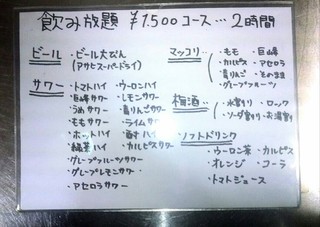 飲み放題 ¥1,500コース… 2時間
ビール
・ビール大びん
(アサヒスーパードライ)
サワー
・トマトハイ ・ウーロンハイ
・巨峰サワー ・レモンサワー
・うめサワー ・青りんごサワー
・ももサワー ・ライムサワー
・ホットハイ
・緑茶ハイ ・カルピスサワー
・グレープフルーツサワー
・グレープレモンサワー
・アセロラサワー
マッコリ
・もも ・巨峰
・カルピス ・アセロラ
・青りんご ・そのまま
・グレープフルーツ
梅酒
・水割り ・ロック
・ソーダ割り ・お湯割り
ソフトドリンク
・ウーロン茶 ・カルピス
・オレンジ ・コーラ
・トマトジュース